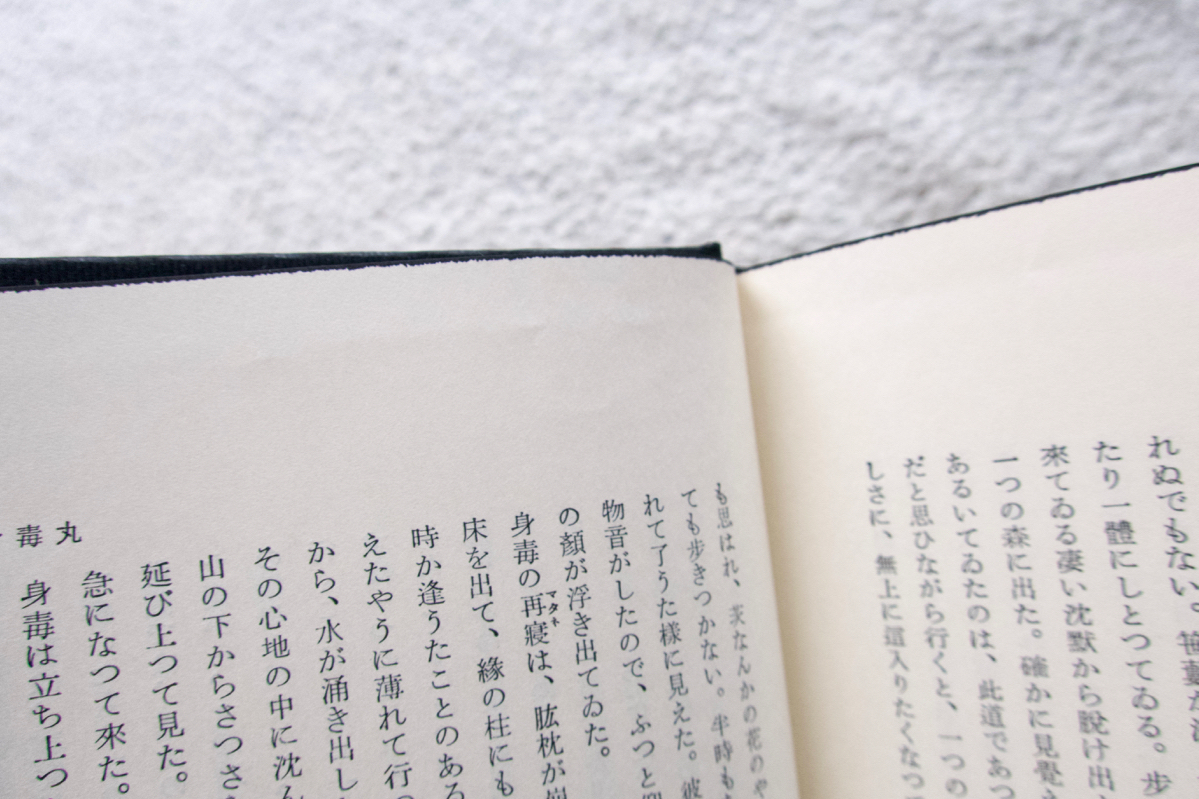 れぬでもない。笹葉が
たり一體にしとつてゐる。歩
來てゐる凄い沈默から脱け出
一つの森に出た。確かに見覺え
あるいてゐたのは、此道であつ
だと思ひながら行くと、一つの
しさに、無上に這入りたくなつて
も思はれ、茨なんかの花のや
ても歩きつかない。半時も
れて了うた樣に見えた。彼
物音がしたので、ふつと
の顏が浮き出てゐた。
身毒の再寢は、肱枕が崩
マタネ
床を出て、縁の柱にも
時か逢うたことのある
えたやうに薄れて行つ
から、水が涌き出し
その心地の中に沈ん
山の下からさつさ
延び上つて見た。
急になつて來た。
身毒は立ち上つ
毒丸